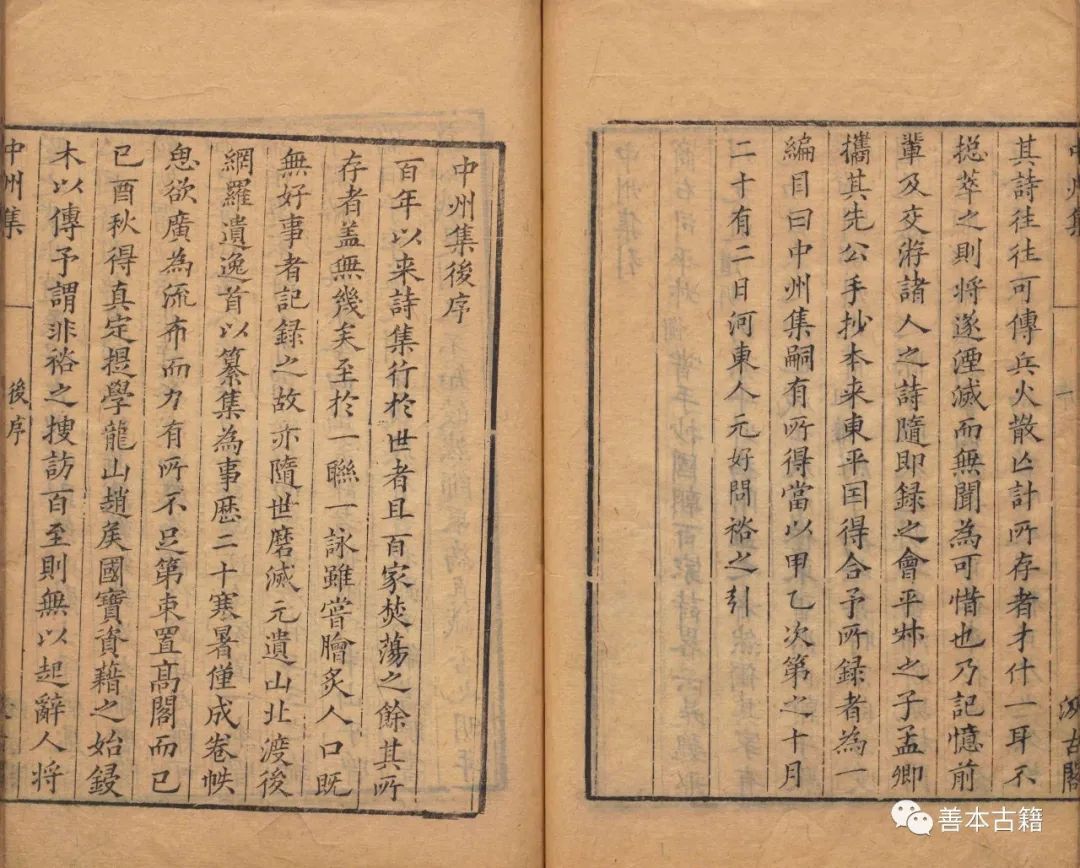 中州集
汲古閣
其詩往往可傳兵火散亡計所存者才什一耳不
捴萃之則將遂湮滅而無聞為可惜也乃記憶前
輩及交游諸人之詩隨即録之會平叔之子孟卿
攜其先公手抄本来東平因得合予所録者為一
編目曰中州集嗣有所得當以甲乙次第之十月
二十有二日河東人元好問裕之引
中州集後序
百年以来詩集行於世者且百家焚蕩之餘其所
存者盖無幾矣至於一聯一詠雖嘗膾炙人口既
無好事者記録之故亦隨世磨滅元遺山北渡後
網羅遺逸首以纂集為事歷二十寒暑僅成卷帙
思欲廣為流布而力有所不足第束置高閣而已
已酉秋得真定提學龍山趙矦國寶資藉之始鋟
木以傳予謂非裕之搜訪百至則無以起辭人將
中州集
後序
善本古籍